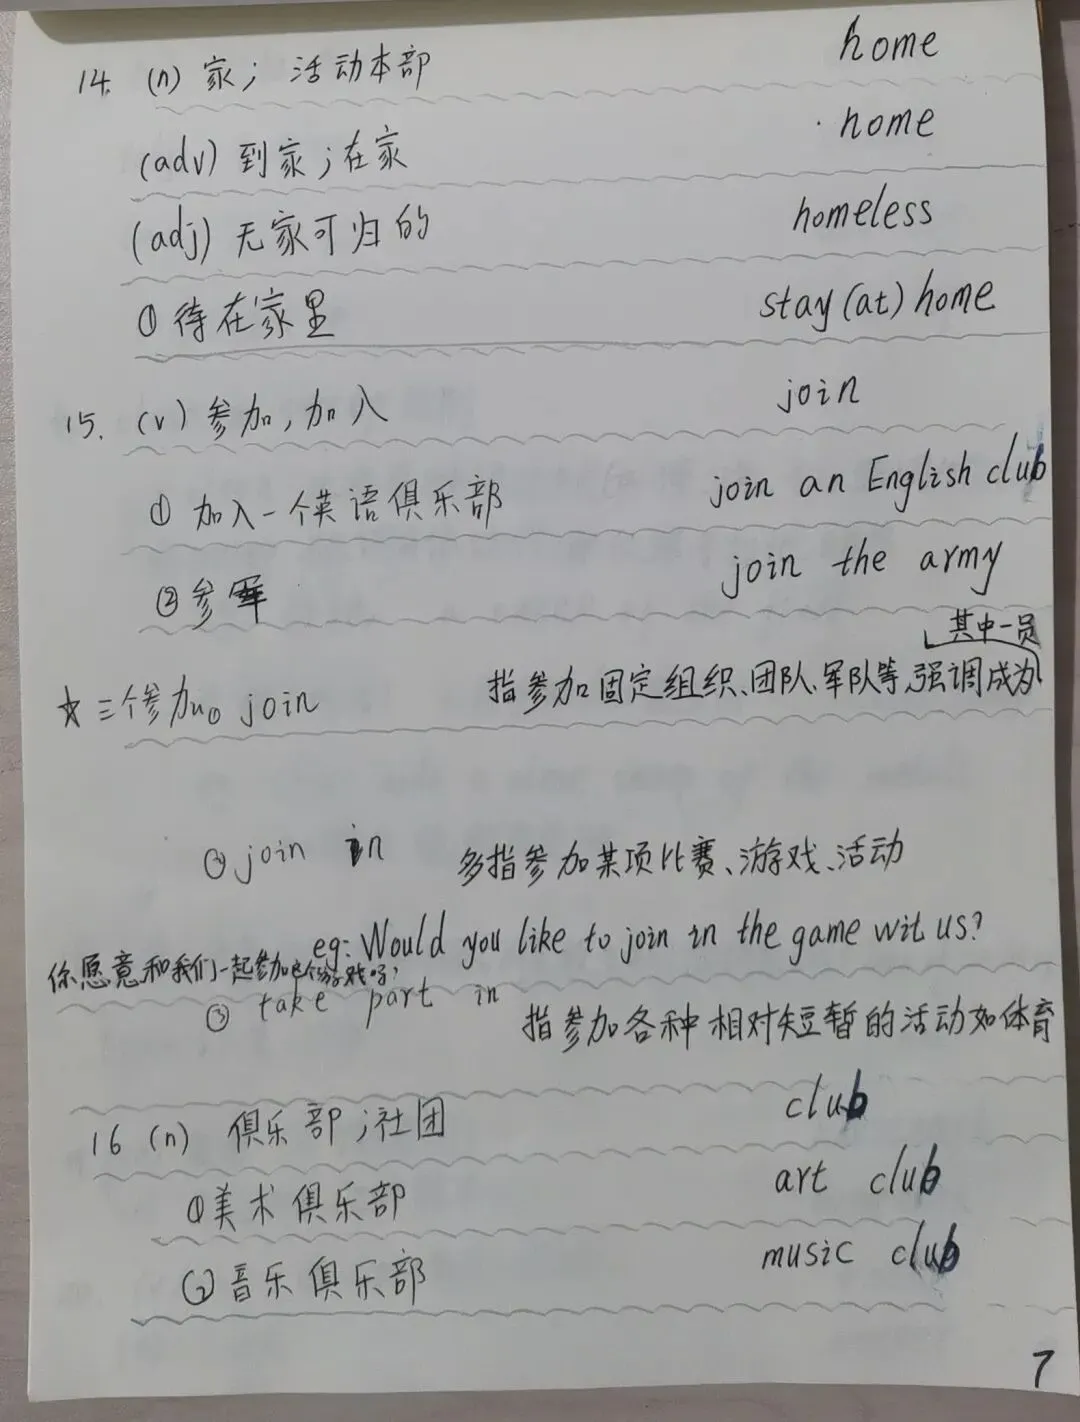 14. (n) 家; 活动本部 home
(adv) 到家;在家 home
(adj) 无家可归的 homeless
① 待在家里 stay (at) home
15. (v) 参加,加入 join
① 加入一个英语俱乐部 join an English club
② 参军 join the army
其中一员
☆ 三个参加 ① join 指参加固定组织、团队、军队等,强调成为
② join in 多指参加某项比赛、游戏、活动
eg: Would you like to join in the game wit us?
你愿意和我们一起参加这个游戏吗?
③ take part in 指参加各种相对短暂的活动如体育
16 (n) 俱乐部;社团 club
① 美术俱乐部 art club
② 音乐俱乐部 music club
7